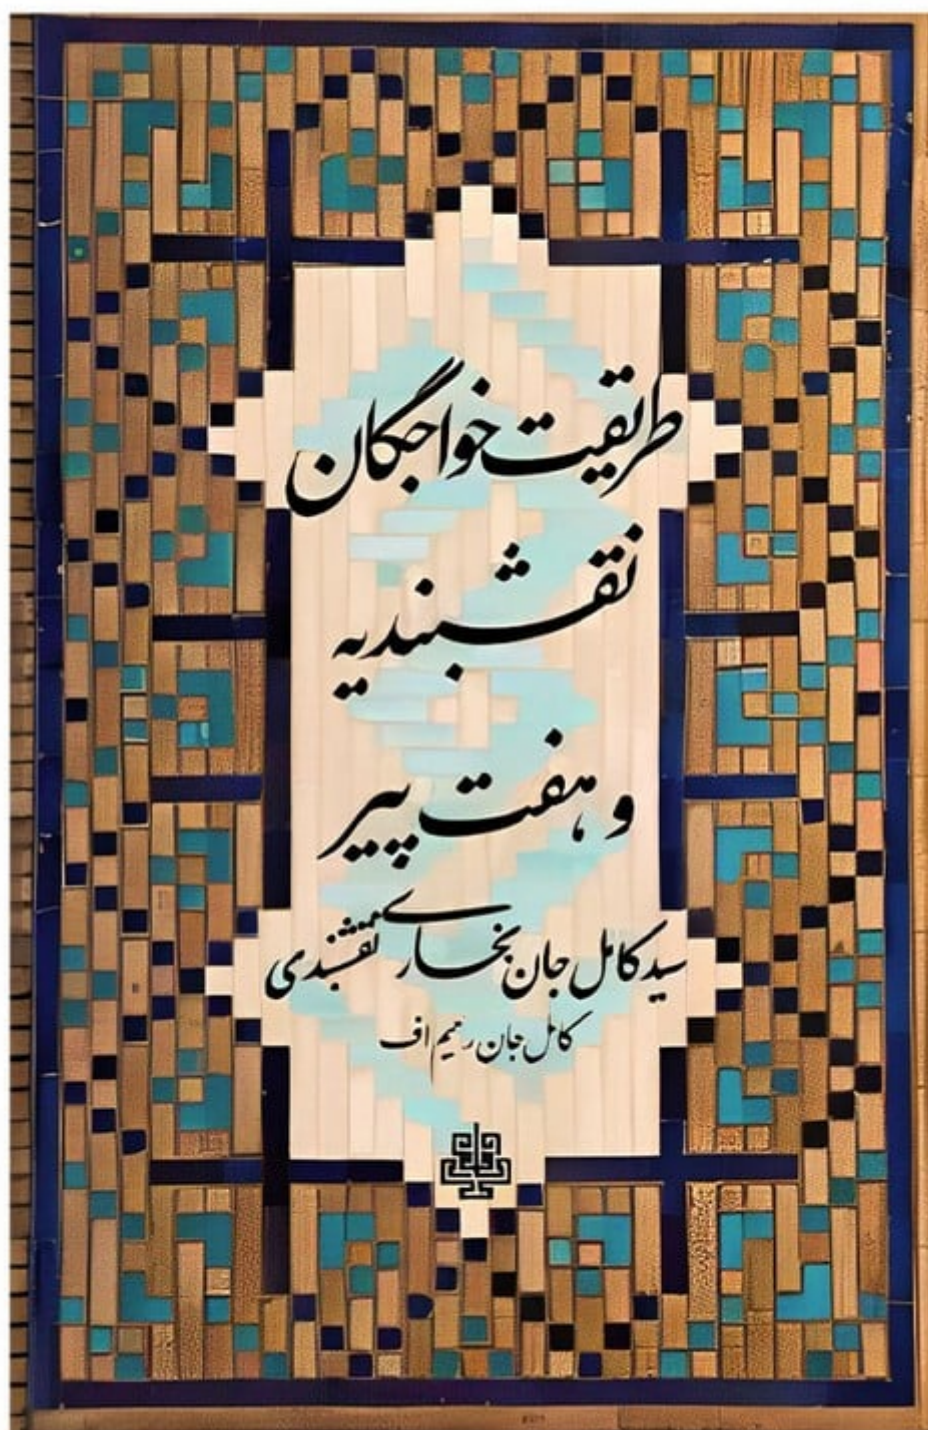 طریقیت خواجگان
نقشبندیه
و هفت پیر
سید کامل جان بخاری نقشبندی
کامل جان رحیم اف